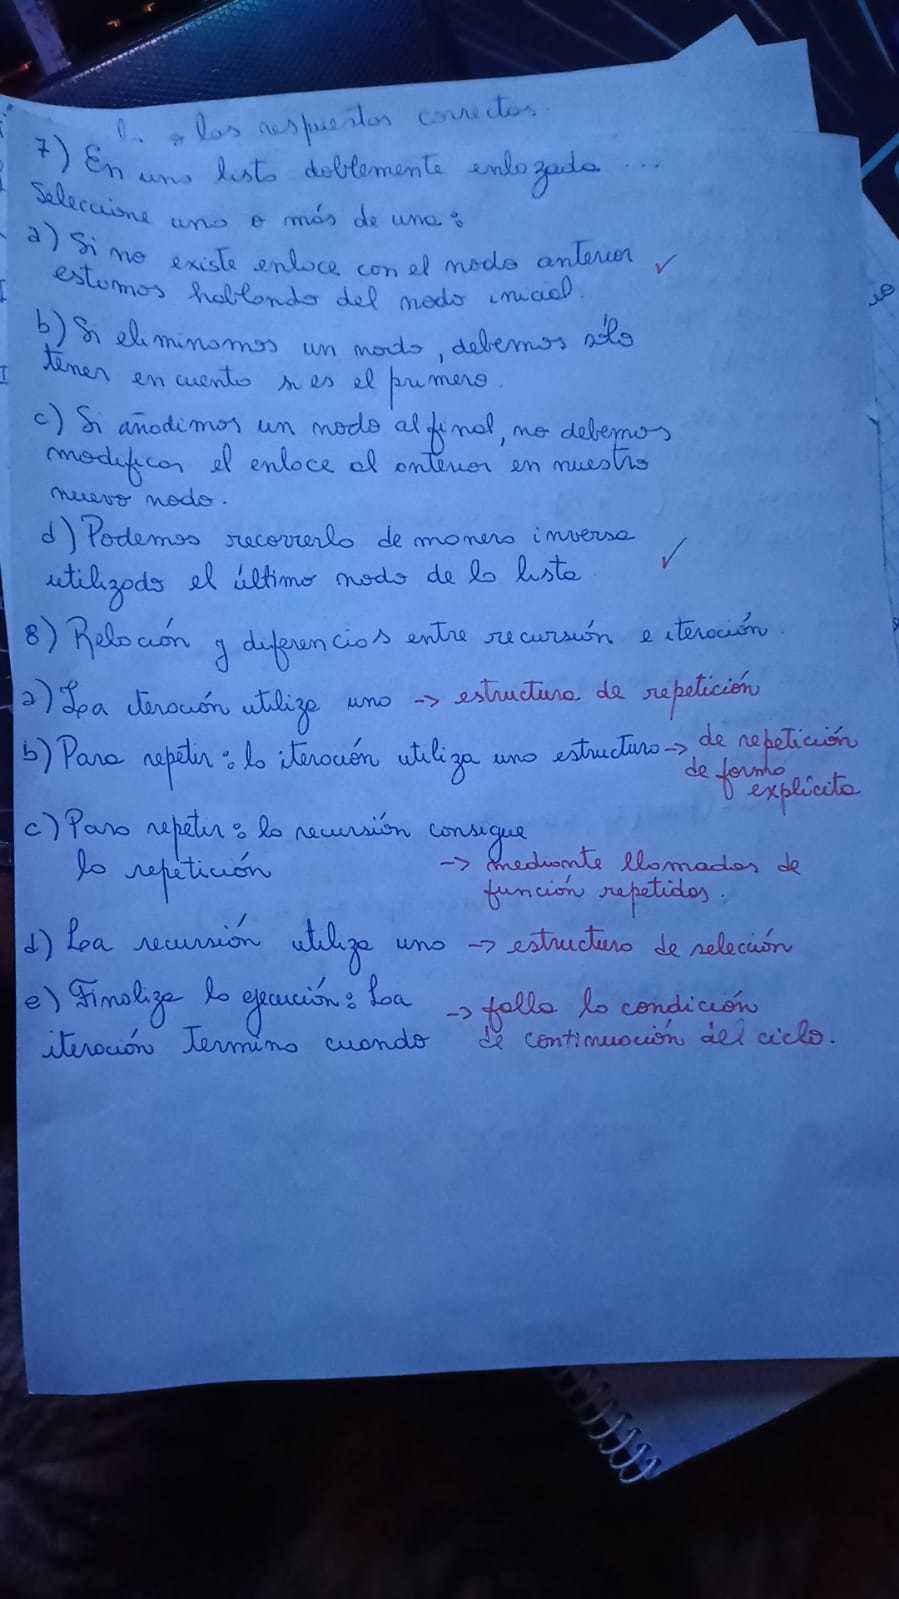 las respuestas correctas.
7) En una lista doblemente enlazada ...
Seleccione una o más de una:
a) Si no existe enlace con el nodo anterior ✓
estamos hablando del nodo inicial.
b) Si eliminamos un nodo, debemos sólo
tener en cuenta si es el primero.
c) Si añadimos un nodo al final, no debemos
modificar el enlace al anterior en nuestro
nuevo nodo.
d) Podemos recorrerla de manera inversa ✓
utilizado el último nodo de la lista
8) Relación y diferencias entre recursión e iteración.
a) La iteración utiliza una -> estructura de repetición
b) Para repetir: la iteración utiliza una estructura -> de repetición
de forma
explícita
c) Para repetir: la recursión consigue
la repetición -> mediante llamadas de
función repetidas.
d) La recursión utiliza una -> estructura de selección
e) Finaliza la ejecución: La -> falla la condición
iteración termina cuando de continuación del ciclo.